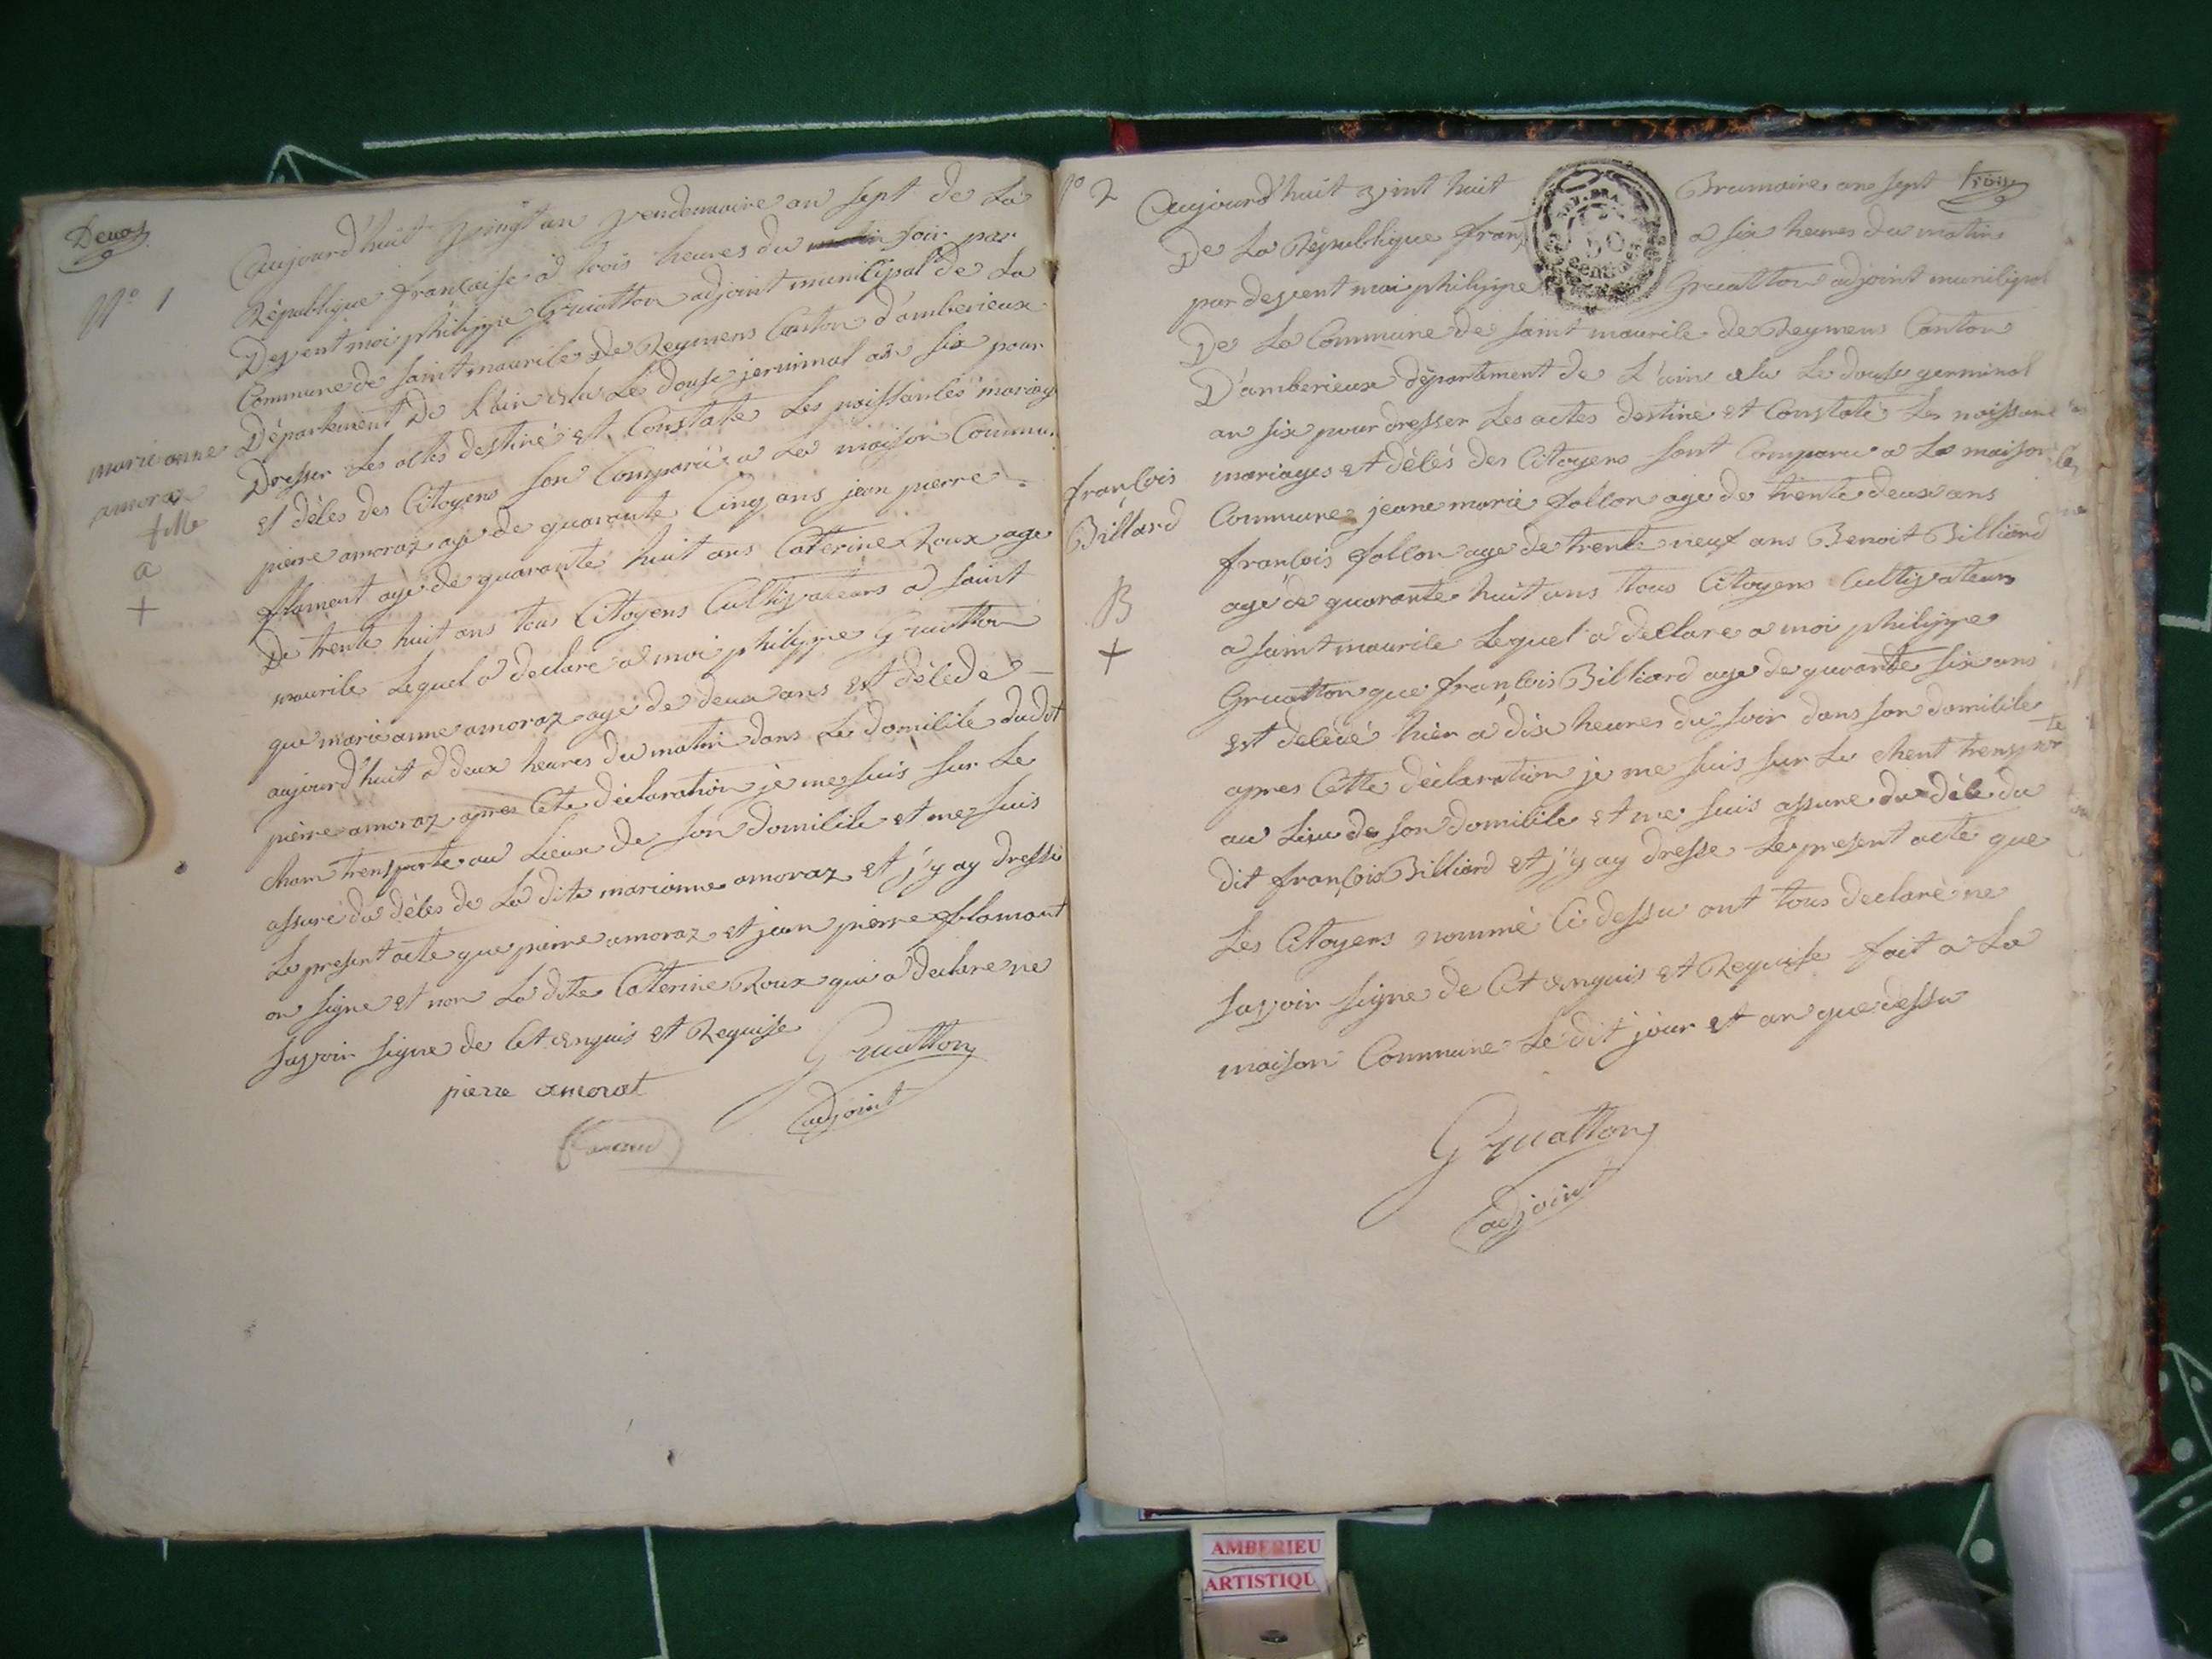 Deux
N° 1
marie anne
amoraz
fille
a
+
Aujourd'huit vingt un vendemiaire an sept de La
République francaise a trois heures du soir par
Devent moi philippe Gruatton adjoint municipal de La
Commune de saint maurice De Reymens Canton d'amberieux
Département De L'ain elu Le douse jerminal an six pour
Dresser Les actes destiné et Constate Les naissances mariag
et dèces des Citoyens son Comparu a La maison Commu.
pierre amoraz agé de quarante Cinq ans jean pierre
flament agé de quarante huit ans Caterine Roux age
De trente huit ans tous Citoyens Cultivateurs a saint
maurice Lequel a declare a moi philippe Gruatton
que marie anne amoraz agé de deux ans est dècede
aujourd'huit a deux heures du matin dans Le domicile dudit
pierre amoraz apres Cete déclaration je me suis sur Le
cham trensporte au Lieux de son domicile et me suis
assuré du dèces de La dite marianne amoraz et j'y ay dressé
Le present acte que pierre amoraz et jean pierre flamant
on signe et non La dite Caterine Roux qui a declare ne
savoir signe de Cet enquis et Requise
Gruatton
adjoint
pierre amorat
N° 2
françois
Billard
B
+
trois
Aujourd'huit vint huit Brumaire an sept
De La République fran a six heures du matin
par devent moi philippe Gruatton adjoint municipal
De La Commune de saint maurice de Reymens Canton
D'amberieux département de L'ain elu Le douse germinal
an six pour dresser Les actes destiné et Constaté Les naissance
mariages et dèces des Citoyens sont Comparu a La maison
Commune jeane marie follon age de trente deux ans
françois follon age de trente neuf ans Benoit Billiard
agé de quarante huit ans tous Citoyens Cultivateurs
a saint maurice Lequel a declare a moi philippe
Gruatton que françois Billiard age de quarante six ans
est decedé hier a dix heures du soir dans son domicile
apres Cette déclaration je me suis sur Le chent trenspor
te
au Lieu de son domicile et me suis assure du dèce du
dit françois Billiard et j'y ay dresse Le present acte que
Les Citoyens nommé Ci dessu ont tous declaré ne
savoir signe de Cet enquis et Requise fait a La
maison Commune Le dit jour et an que dessu
Gruatton
adjoint
AMBERIEU
ARTISTIQU